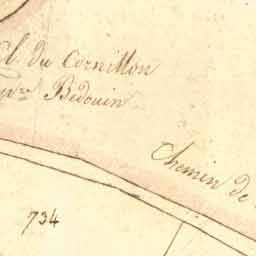 du Cornillon
Bedouin
Chemin de
734